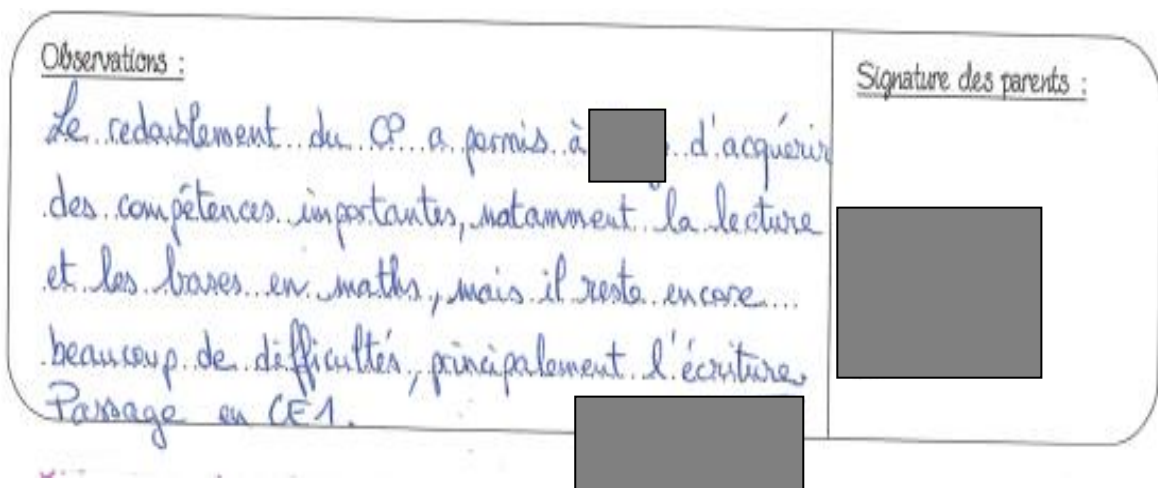 Observations :
Signature des parents :
Le redoublement du CP a permis à d'acquérir
des compétences importantes, notamment la lecture
et les bases en maths, mais il reste encore
beaucoup de difficultés, principalement l'écriture.
Passage en CE1.